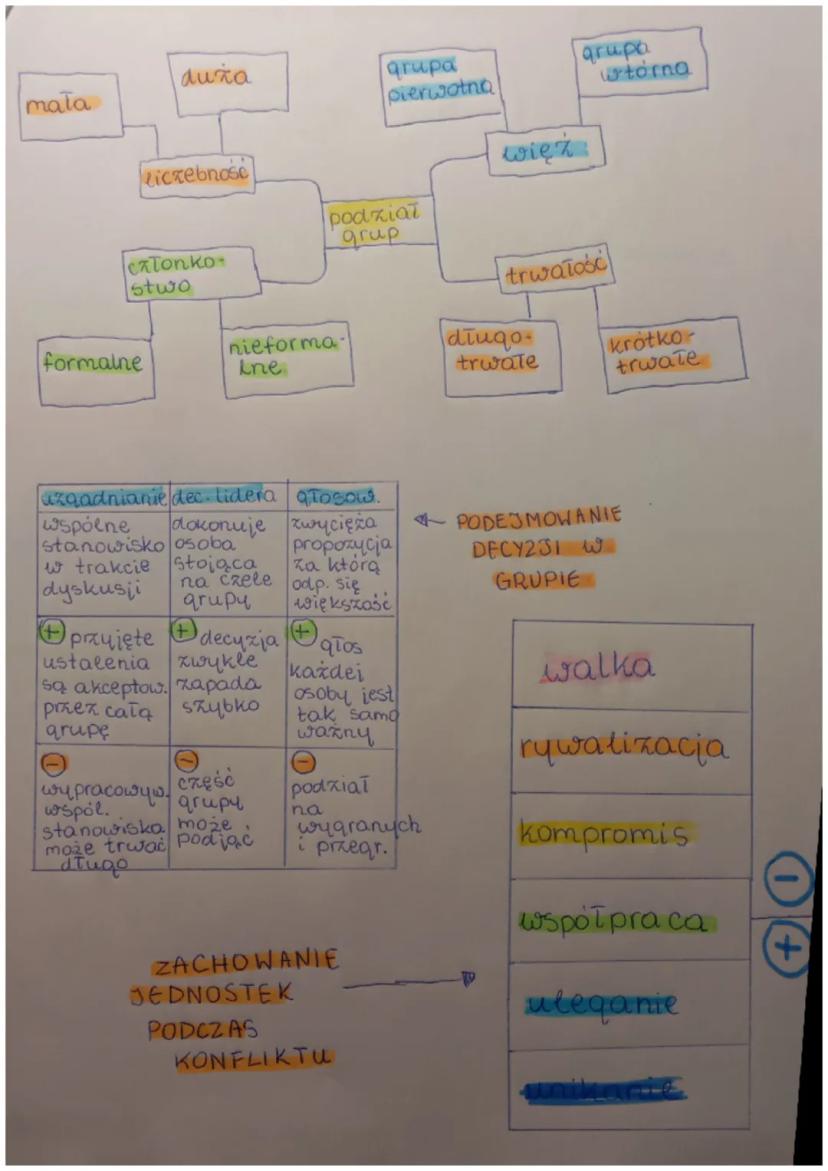 mała
duża
liczebność
grupa
pierwotna
grupa
wtórna
więź
podział
grup
członko-
stwo
formalne
nieforma-
lne
trwałość
długo-
trwałe
krótko-
trwałe
uzgadnianie dec. lidera głosow.
wspólne
stanowisko
w trakcie
dyskusji
dokonuje
osoba
stojąca
na czele
grupy
zwycięża
propozycja
za którą
odp. się
większość
+ przyjęte
ustalenia
są akceptow.
przez całą
grupę
+ decyzja
zwykle
zapada
szybko
+ głos
każdej
osoby jest
tak samo
ważny
-
wypracowyw.
wspól.
stanowiska
może trwać
długo
-
część
grupy
może
podjąć
-
podział
na
wygranych
i przegr.
← PODEJMOWANIE
DECYZJI W
GRUPIE
walka
rywalizacja
kompromis
współpraca
uleganie
unikanie
-
+
ZACHOWANIE
JEDNOSTEK
PODCZAS
KONFLIKTU